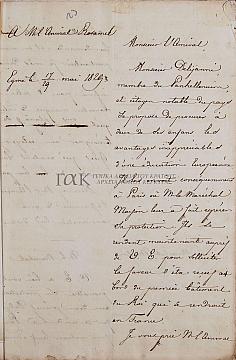 A M. l'Amiral Rosamel
Egine le 17/29 mai 1829
Monsieur l'Amiral
Monsieur Delijanni
membre du Panhellenium
et citoyen notable du pays
se propose de procurer à
deux de ses enfans les
avantages inappréciables
d'une éducation Européenne
ΓΑΚ ΓΕΝΙΚΑ ΑΡΧΕΙΑ ΤΟΥ ΚΡΑΤΟΥΣ
conséquemment
à Paris où M. le Maréchal
Maison leur a fait espérer
sa protection Ils se
rendent maintenant auprès
de V. E. pour solliciter
la faveur d'être reçus à
bord du premier bâtiment
du Roi qui se rendroit
en France.
Je vous prie M. l'Amiral